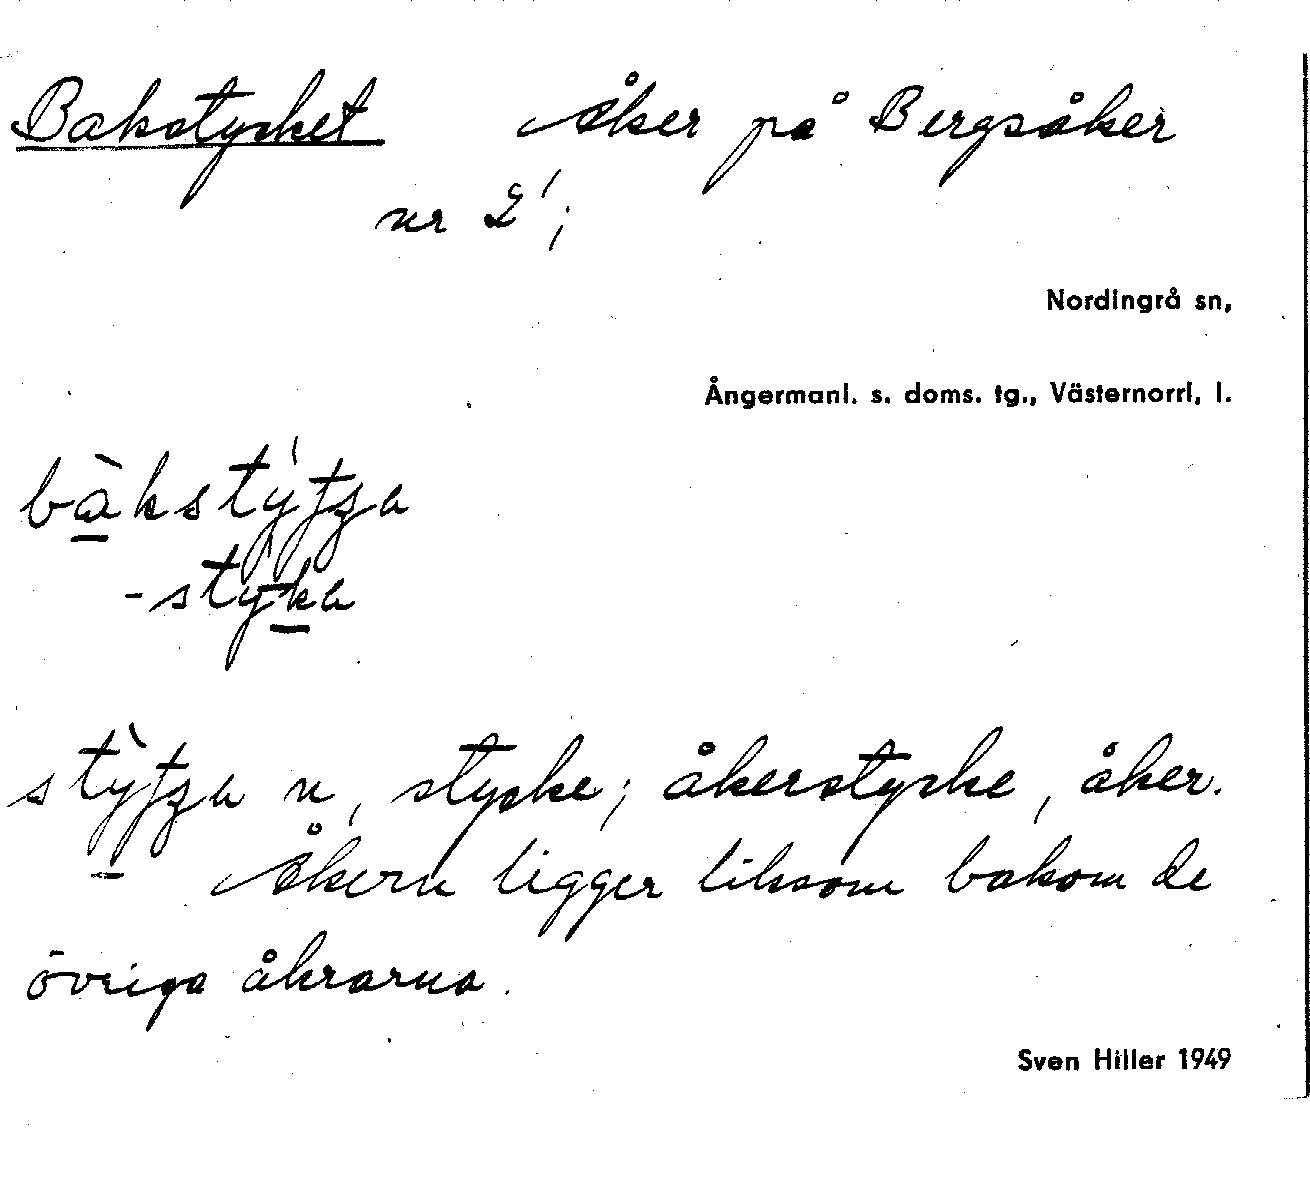 Bakstycket Åker på Bergsåker
nr 2¹;
Nordingrå sn,
Ångermanl. s. doms. tg., Västernorrl. l.
bàkstýtʒa
-stýka
stỳtʒa n, stycke; åkerstycke, åker.
Åkern ligger liksom bakom de
övriga åkrarna.
Sven Hiller 1949